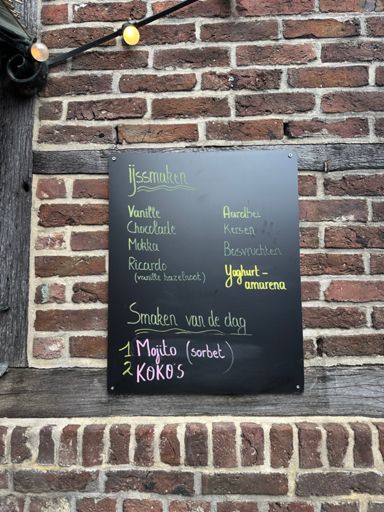 ijssmaken
Vanille
Chocolade
Mokka
Ricardo
(vanille hazelnoot)
Aardbei
Kersen
Bosvruchten
Yoghurt-
amarena
Smaken van de dag
1 Mojito (sorbet)
2 KOKOS